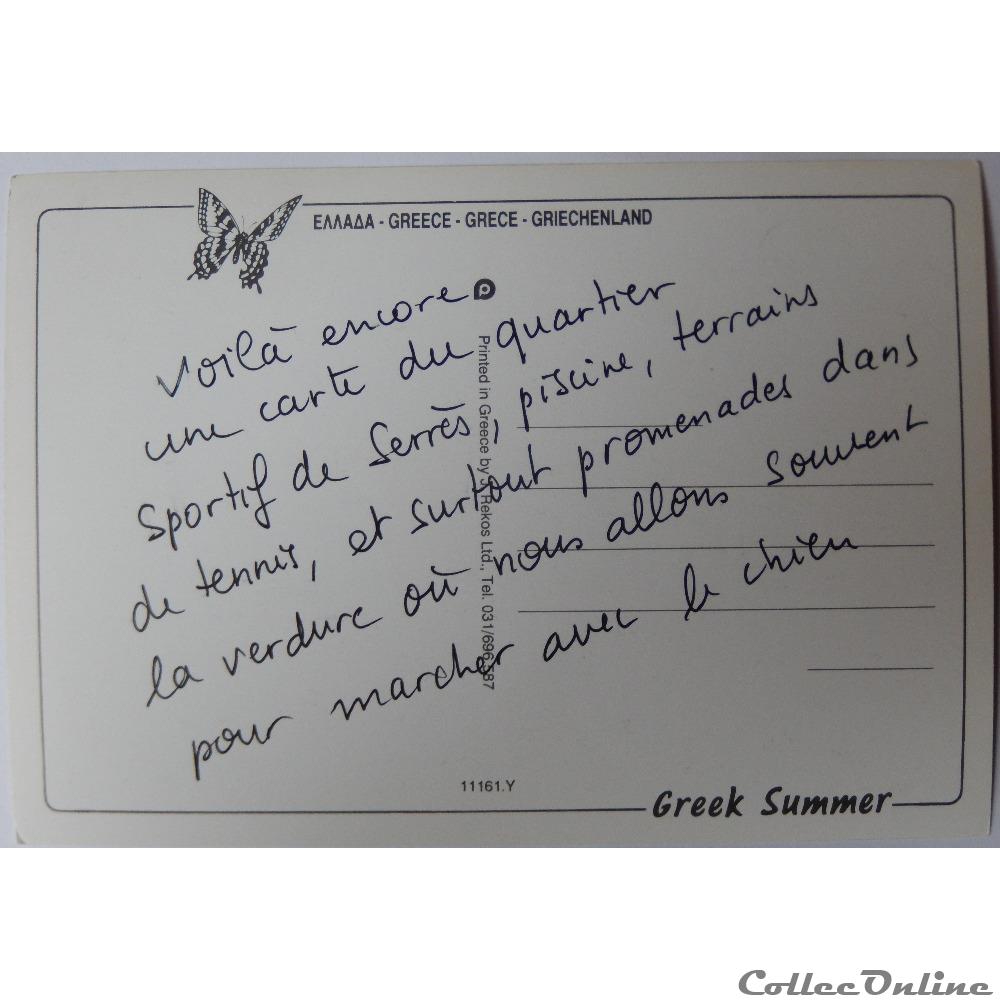 ΕΛΛΑΔΑ - GREECE - GRECE - GRIECHENLAND
Voilà encore
une carte du quartier
sportif de Serrès, piscine, terrains
de tennis, et surtout promenades dans
la verdure où nous allons souvent
pour marcher avec le chien
Printed in Greece by J. Rekos Ltd., Tel. 031/696.587
11161.Y
Greek Summer
CollecOnline